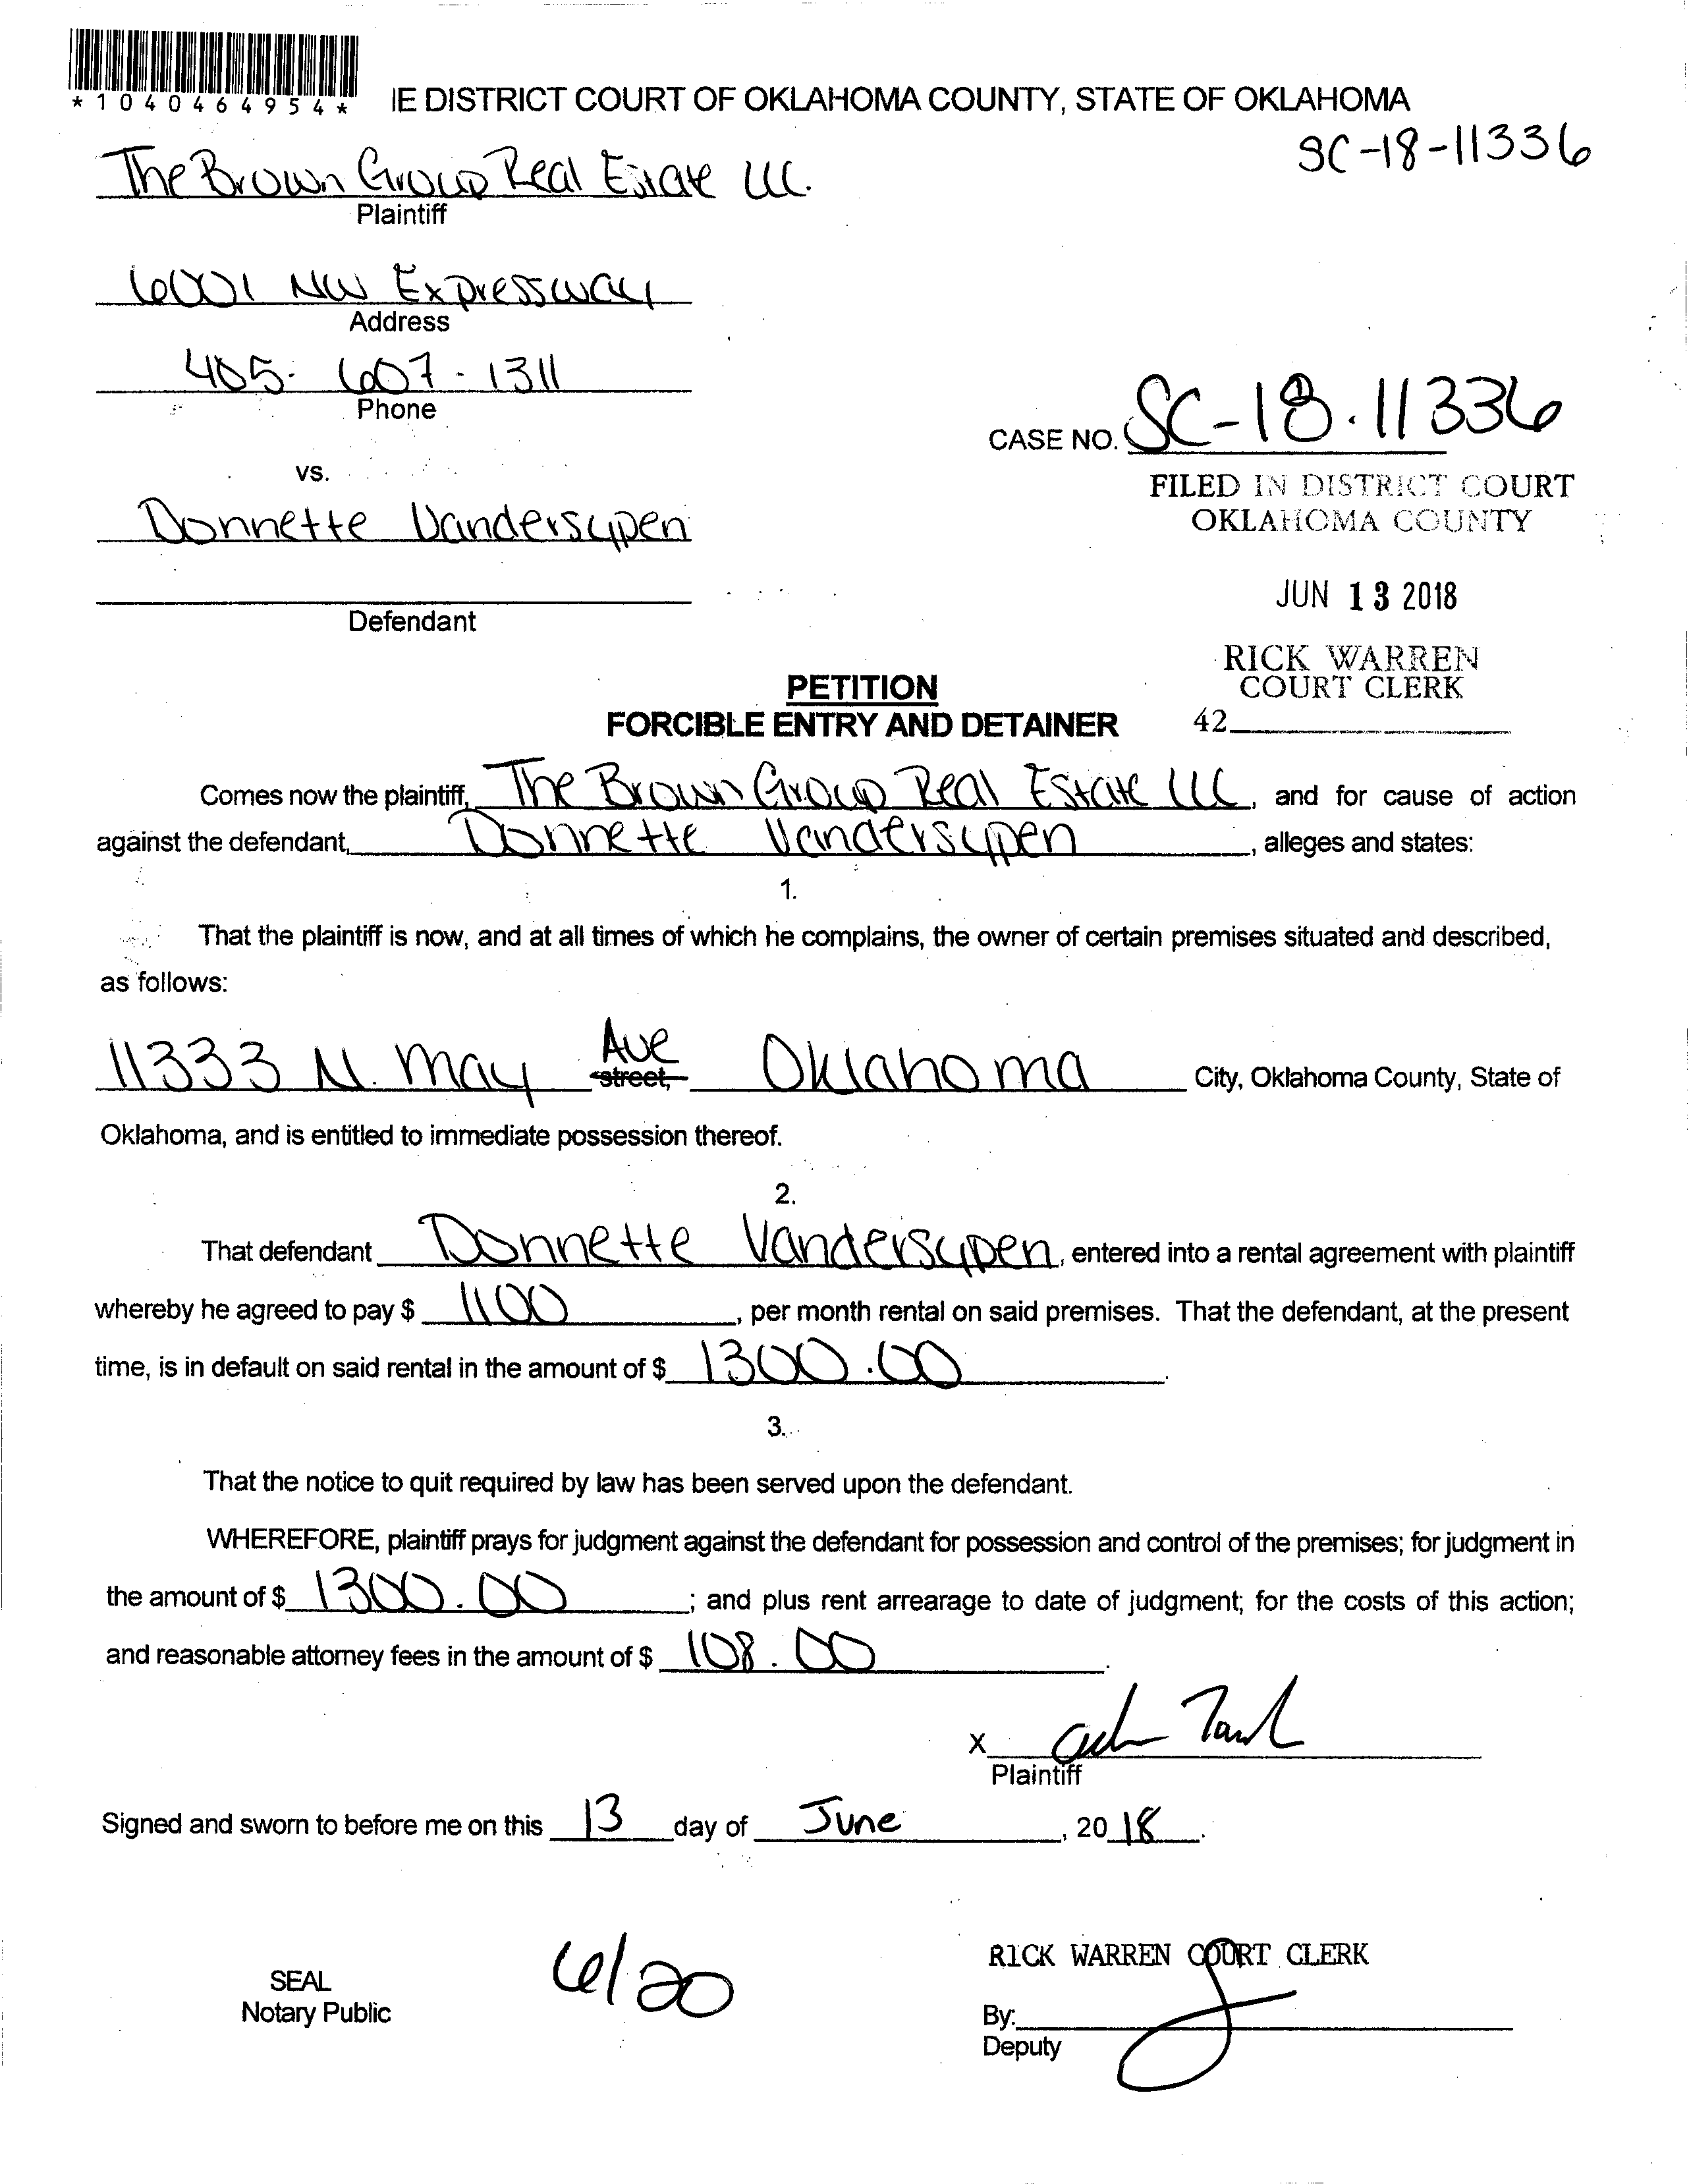 *1040464954*
IE DISTRICT COURT OF OKLAHOMA COUNTY, STATE OF OKLAHOMA
SC-18-11336
The Brown Group Real Estate LLC.
Plaintiff
6001 NW Expressway
Address
405-607-1311
Phone
CASE NO. SC-18-11336
vs.
FILED IN DISTRICT COURT
OKLAHOMA COUNTY
Donnette Vandersypen
JUN 13 2018
Defendant
RICK WARREN
COURT CLERK
42
PETITION
FORCIBLE ENTRY AND DETAINER
Comes now the plaintiff, The Brown Group Real Estate LLC, and for cause of action
against the defendant, Donnette Vandersypen, alleges and states:
1.
That the plaintiff is now, and at all times of which he complains, the owner of certain premises situated and described,
as follows:
11333 N. May Ave street, Oklahoma City, Oklahoma County, State of
Oklahoma, and is entitled to immediate possession thereof.
2.
That defendant Donnette Vandersypen, entered into a rental agreement with plaintiff
whereby he agreed to pay $ 1100, per month rental on said premises. That the defendant, at the present
time, is in default on said rental in the amount of $ 1300.00.
3.
That the notice to quit required by law has been served upon the defendant.
WHEREFORE, plaintiff prays for judgment against the defendant for possession and control of the premises; for judgment in
the amount of $ 1300.00; and plus rent arrearage to date of judgment; for the costs of this action;
and reasonable attorney fees in the amount of $ 108.00.
X
Plaintiff
Signed and sworn to before me on this 13 day of June, 2018.
6/20
RICK WARREN COURT CLERK
SEAL
Notary Public
By:
Deputy